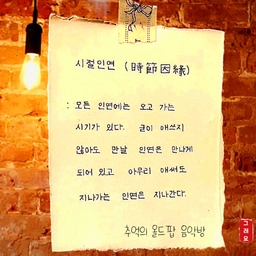 시절인연 (時節因緣)
: 모든 인연에는 오고 가는
시기가 있다. 굳이 애쓰지
않아도 만날 인연은 만나게
되어 있고 아무리 애써도
지나가는 인연은 지나간다.
추억의 올드팝 음악방
그래요